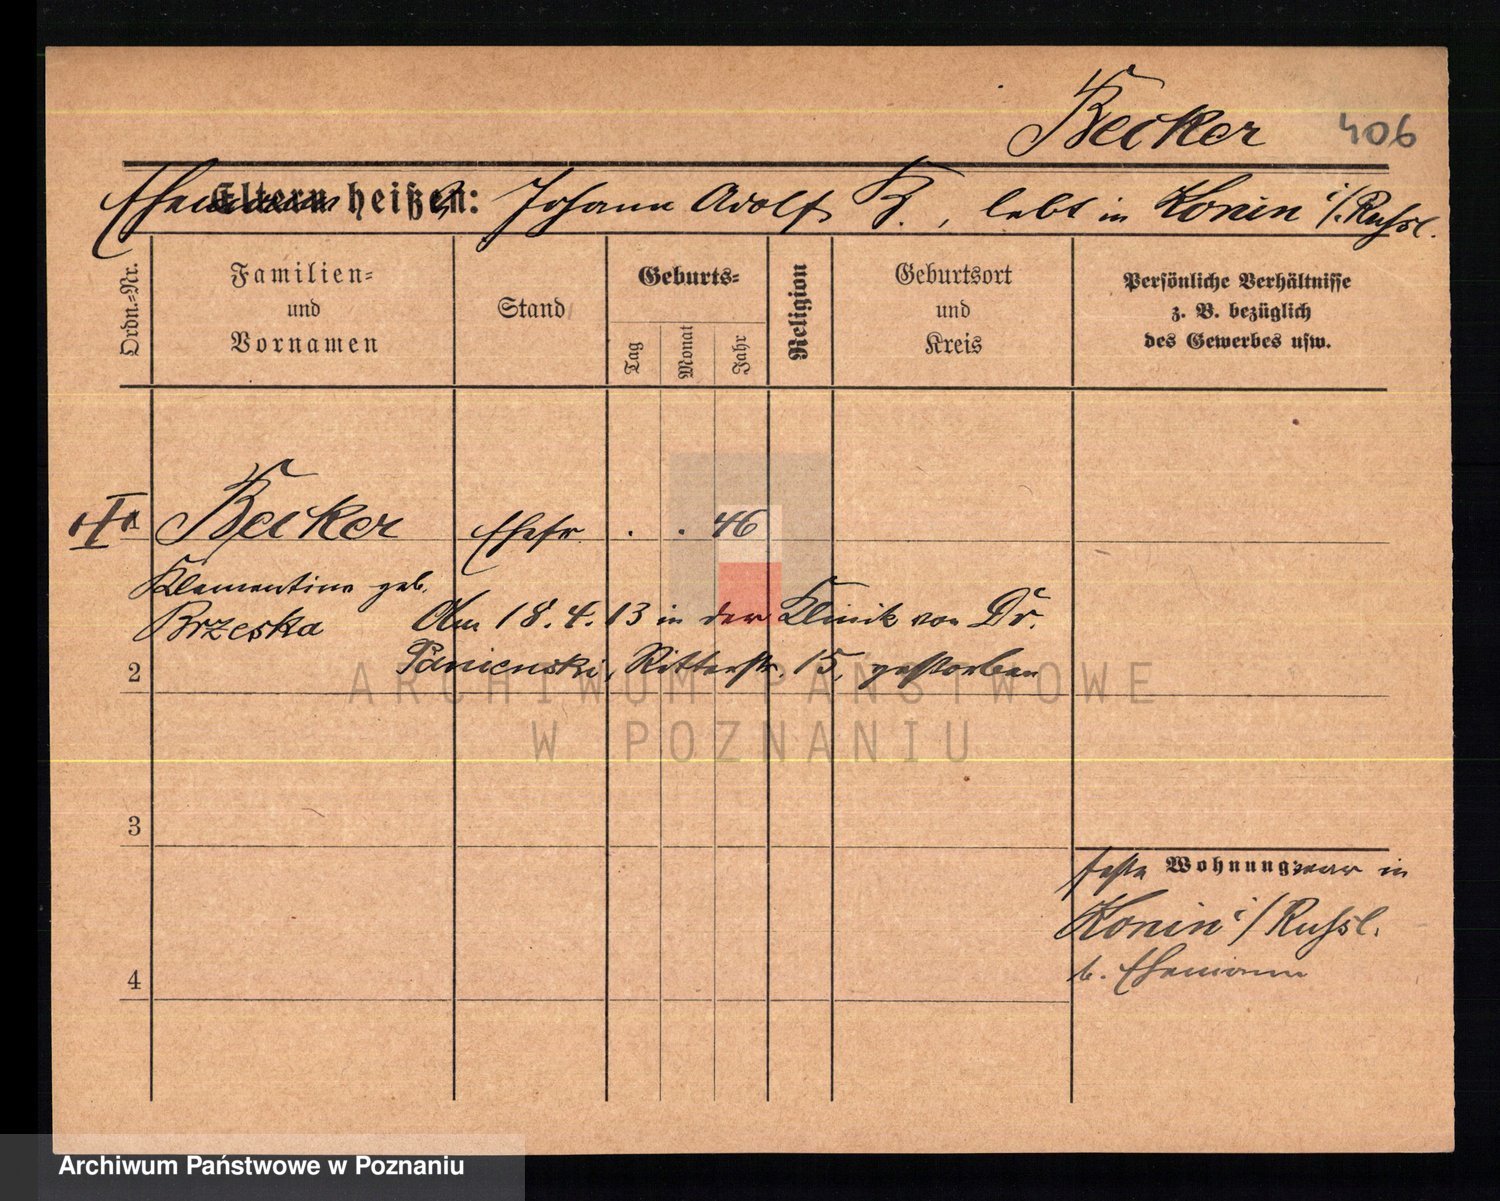 Becker 406
Ehemann Eltern heißen: Johann Adolf B., lebt in Konin i/Russl.
Ordn.=Nr.
Familien=
und
Vornamen
Stand
Geburts=
Tag
Monat
Jahr
Religion
Geburtsort
und
Kreis
Persönliche Verhältnisse
z. B. bezüglich
des Gewerbes usw.
1 Becker Ehefr. . . 46
Klementine geb.
Brzeska Am 18.4.13 in der Klinik von Dr.
2 Panienski, Ritterstr. 15, gestorben
ARCHIWUM PAŃSTWOWE
W POZNANIU
3
feste Wohnung war in
Konin i/Russl.
b. Ehemann
4
Archiwum Państwowe w Poznaniu